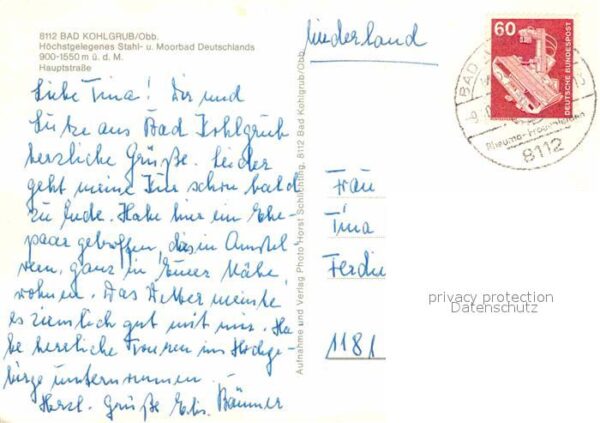 8112 BAD KOHLGRUB/Obb.
Höchstgelegenes Stahl- u. Moorbad Deutschlands
900-1550 m ü. d. M.
Hauptstraße
Liebe Tina! Dir und
aus Bad Kohlgrub
herzliche Grüße. Leider
geht meine Kur schon bald
zu Ende. Habe hier ein Ehe-
paar getroffen, das in Amstel
veen, ganz in Eurer Nähe
wohnen. Das Wetter meinte
es ziemlich gut mit mir. Ha
be herrliche Touren ins Hochge-
birge unternommen
Herzl. Grüße Elis. Bäumer
Aufnahme und Verlag Photo Horst Schlichting, 8112 Bad Kohlgrub/Obb.
Niederland
60
DEUTSCHE BUNDESPOST
BAD
8112
Frau
Tina
Ferdin
1181
privacy protection
Datenschutz